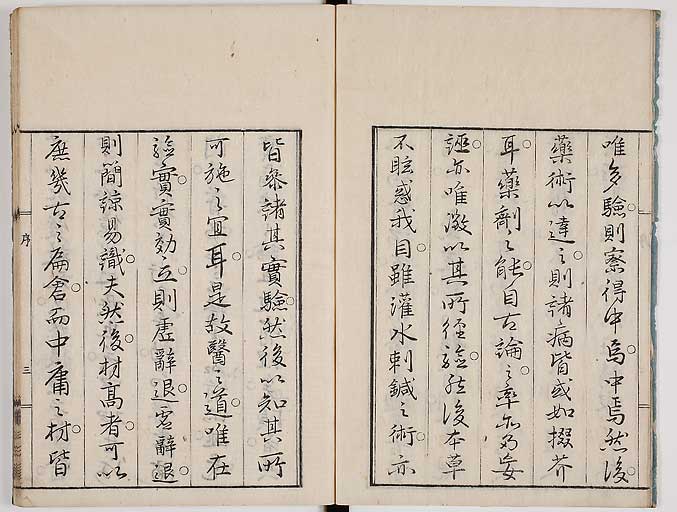 唯多驗則察得中焉中焉然後
藥術以達之則諸病皆或如掇芥
耳藥劑之能自古論之率亦多妄
誣亦唯徵以其所經驗然後本草
不眩惑我目雖灌水刺鍼之術亦
皆參諸其實驗然後以知其所
可施之宜耳是故醫之道唯在
驗實實効立則虛辭退虛辭退
則簡諒易識夫然後材高者可以
庶幾古之扁倉而中庸之材皆
序
三